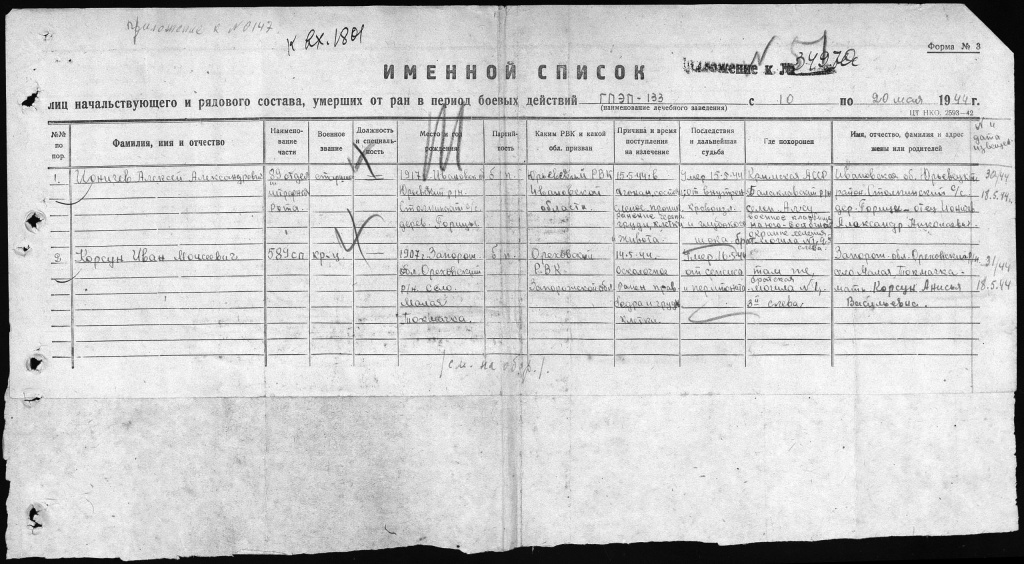 приложение к № 0147
к вх. 1801
Форма № 3
Приложение к № 34970с
ИМЕННОЙ СПИСОК
лиц начальствующего и рядового состава, умерших от ран в период боевых действий ГПЭП-133 с 10 по 20 мая 1944 г.
(наименование лечебного заведения)
ЦТ НКО. 2593—42
№№ по пор.
Фамилия, имя и отчество
Наименование части
Военное звание
Должность и специальность
Место и год рождения
Партийность
Каким РВК и какой обл. призван
Причина и время поступления на излечение
Последствия и дальнейшая судьба
Где похоронен
Имя, отчество, фамилия и адрес жены или родителей
№ и дата извещен.
1. Ионичев Алексей Александрович
39 отдел. штрафная рота
—
1917 Ивановская
Юрьевский р-н
Столпинский с/с.
дерев. Горицы
б/п.
Юрьевский РВК
Ивановской
области
15.5.44г.
слепое
грудн. клетки
живота
Умер 15.5.44
от внутрен.
кровоизл.
и глубокого
шока.
Крымская АССР
Балаклавский р-н
селен. Алсу
военное кладбище
Ивановская об. Юрьевецкий
район Столпинский с/с.
дер. Горицы отец Ионичев
Александр Николаевич
20/44
18.5.44г.
2. Корсун Иван Моисеевич
589 сп
кр-ц
—
1907. Запорож
обл. Ореховский
р/н. село.
Малая
Токмачка.
б/п.
Ореховский
РВК.
Запорожской обл.
14.5.44.
осколочное
ранен. прав.
бедра и груд.
клетки.
Умер 16.5.44
от сепсиса
и перитонита
там же,
братская
могила № 1,
3й слева
Запорож. обл. Ореховский р-н.
село Малая Токмачка.
мать Корсун Анисья
Васильевна.
21/44
18.5.44
/см. на обор./.